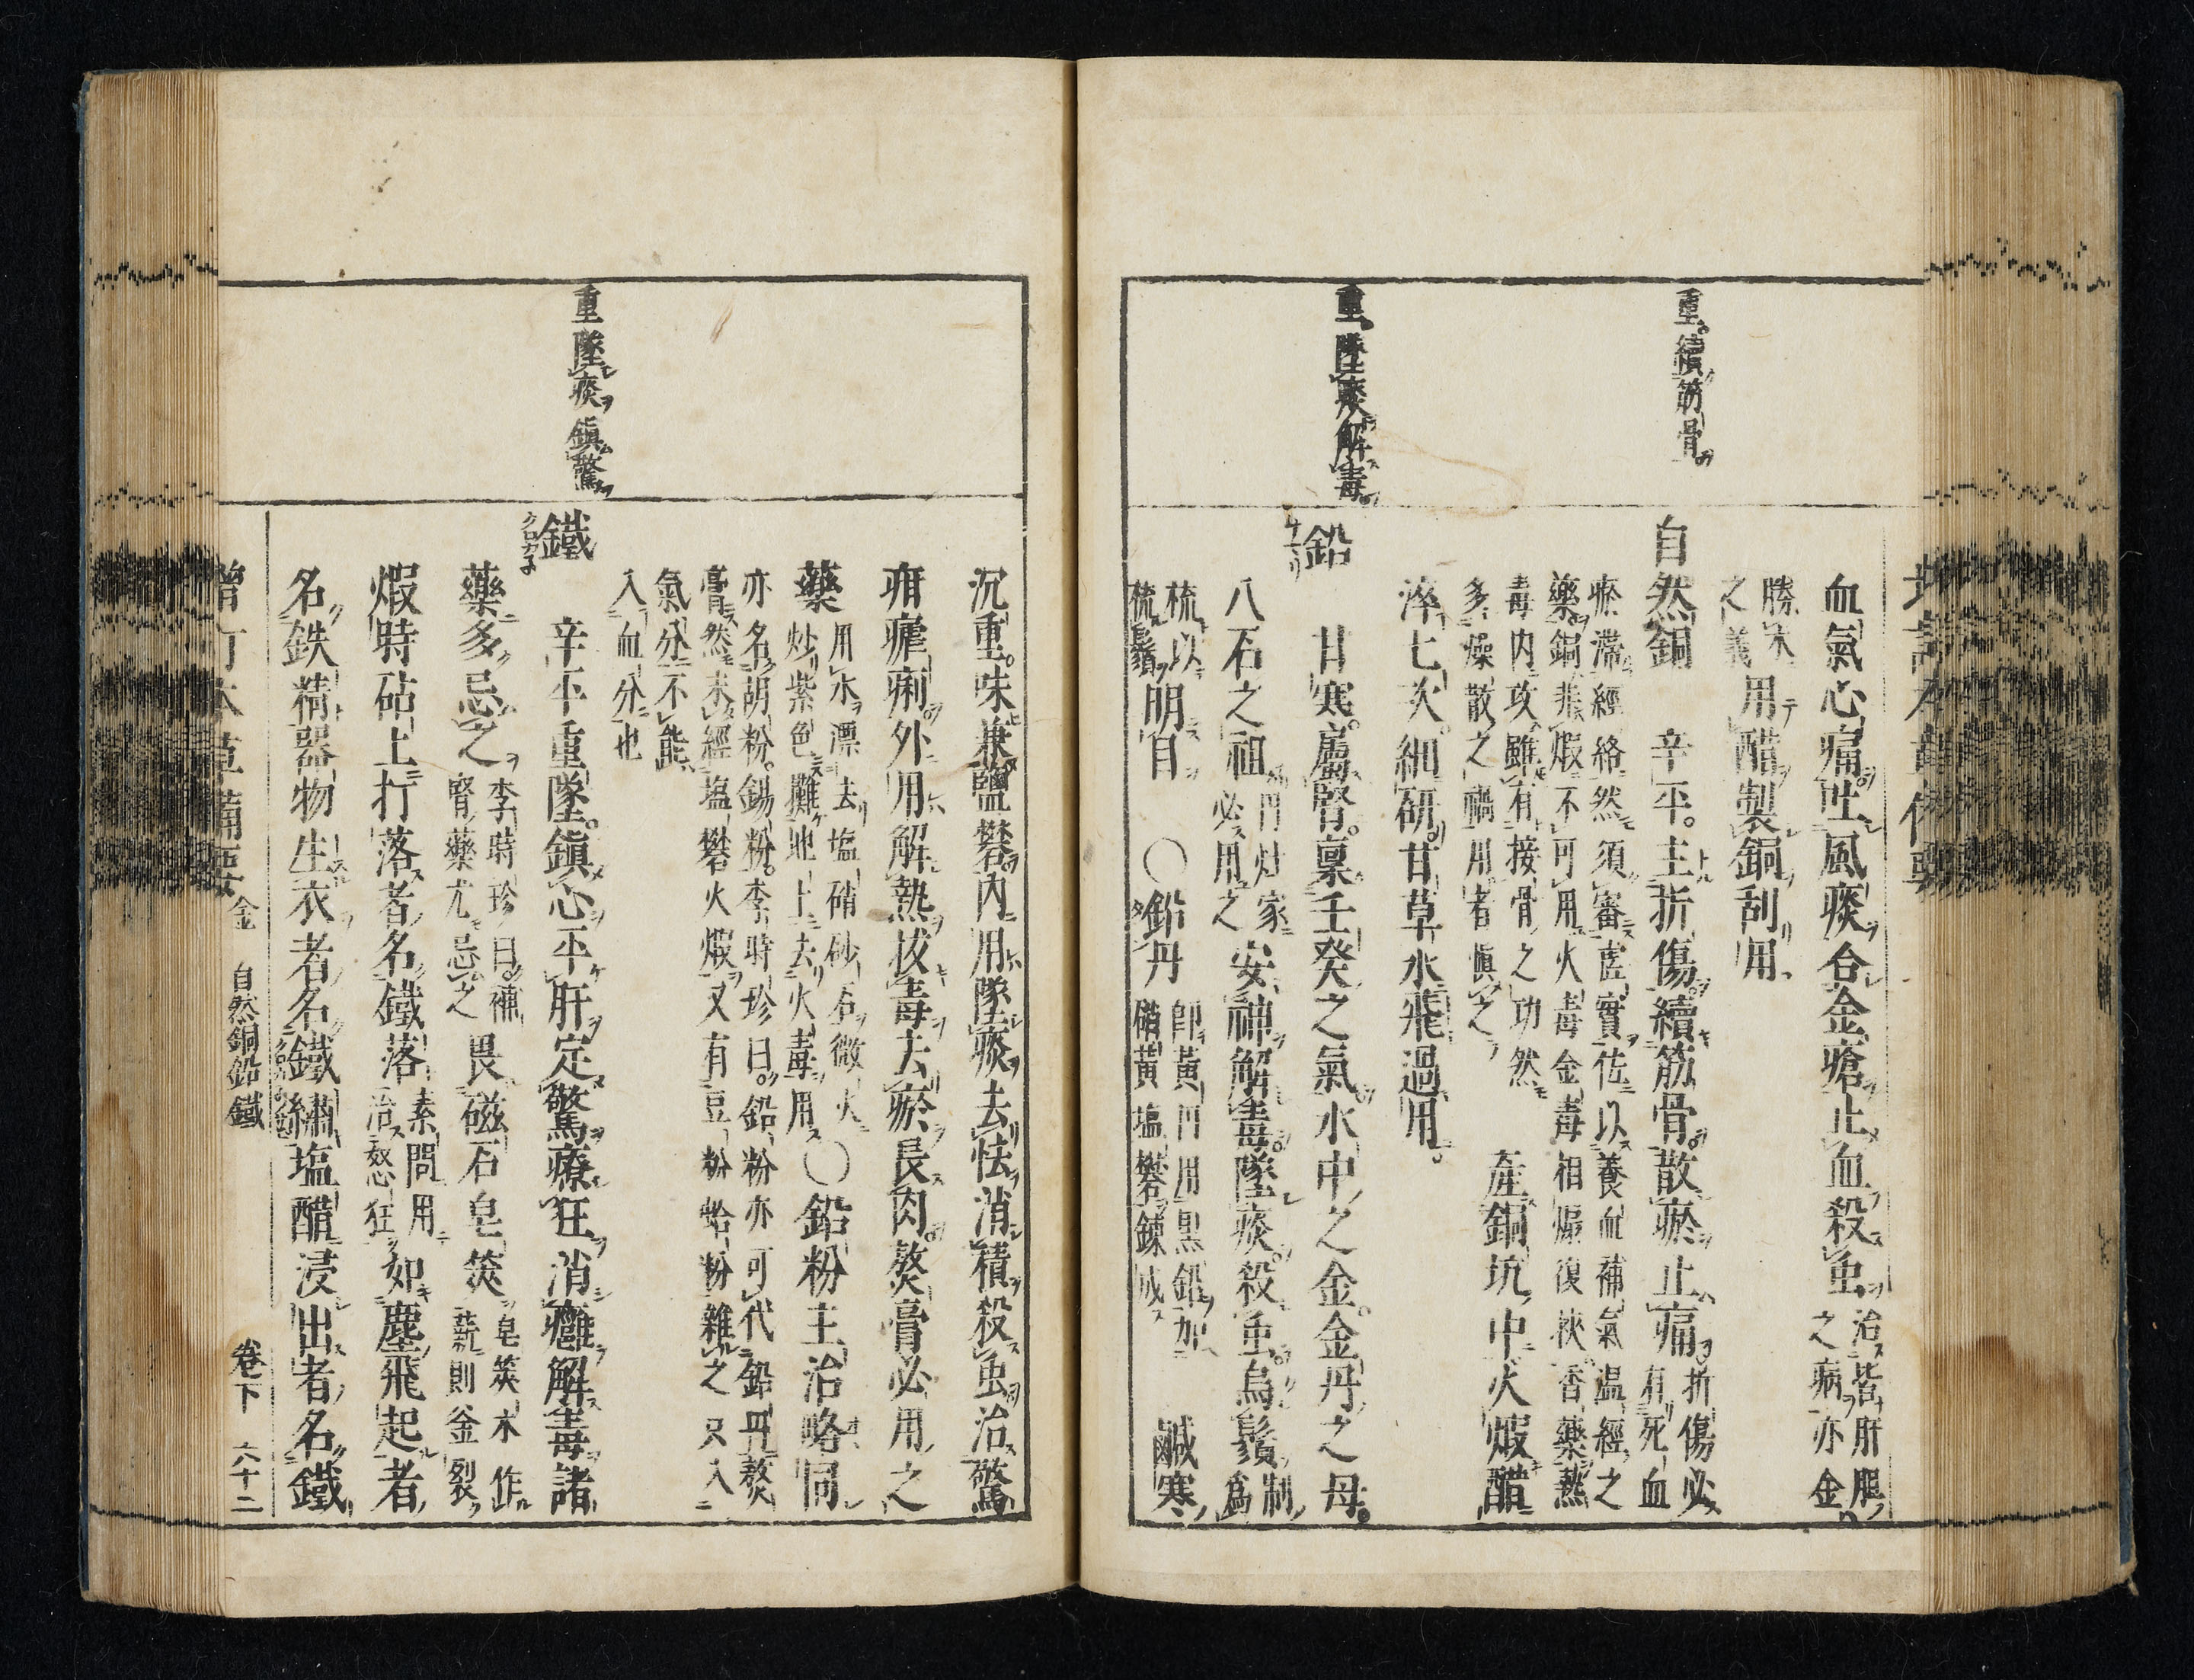 重續筋骨
重墜痰解毒
血氣心痛吐風痰合金瘡止血殺虫
治皆肝膽
之病亦金
勝木
之義
用醋製銅刮用
自然銅
辛平主折傷續筋骨散瘀止痛
折傷必
有死血
瘀滯經絡然須審虛實佐以養血補氣溫經之
藥銅非煆不可用火毒金毒相煽復挾香藥熱
毒内攻雖有接骨之功然
多燥散之禍用者愼之
產銅坑中火煆醋
淬七次細研甘草水飛過用
鉛
甘寒屬腎稟壬癸之氣水中之金金丹之母
八石之祖
丹灶家
必用之
安神解毒墜痰殺虫烏鬚
制
爲
梳以
梳鬚
明目
○鉛丹
即黃丹用黑鉛加
硝黃塩礬鍊成
鹹寒
重墜痰鎮驚
沉重味兼鹽礬内用墜痰去怯消積殺虫治驚
疳瘧痢外用解熱拔毒去瘀長肉熬膏必用之
藥
用水漂去塩硝砂石微火
炒紫色攤地上去火毒用
○鉛粉主治略同
亦名胡粉錫粉李時珍曰鉛粉亦可代鉛丹熬
膏然未經塩礬火煆又有豆粉蛤粉雜之只入
氣分不能
入血分也
鐵
クロカネ
辛平重墜鎮心平肝定驚療狂消癰解毒諸
藥多忌之
李時珍曰補
腎藥尤忌之
畏磁石皂筴
皂筴木作
薪則釜裂
煆時砧上打落者名鐵落
素問用
治怒狂
如塵飛起者
名鉄精器物生衣者名鐵繡塩醋浸出者名鐵
增訂本草備要
金
自然銅鉛鐵
卷下
六十二